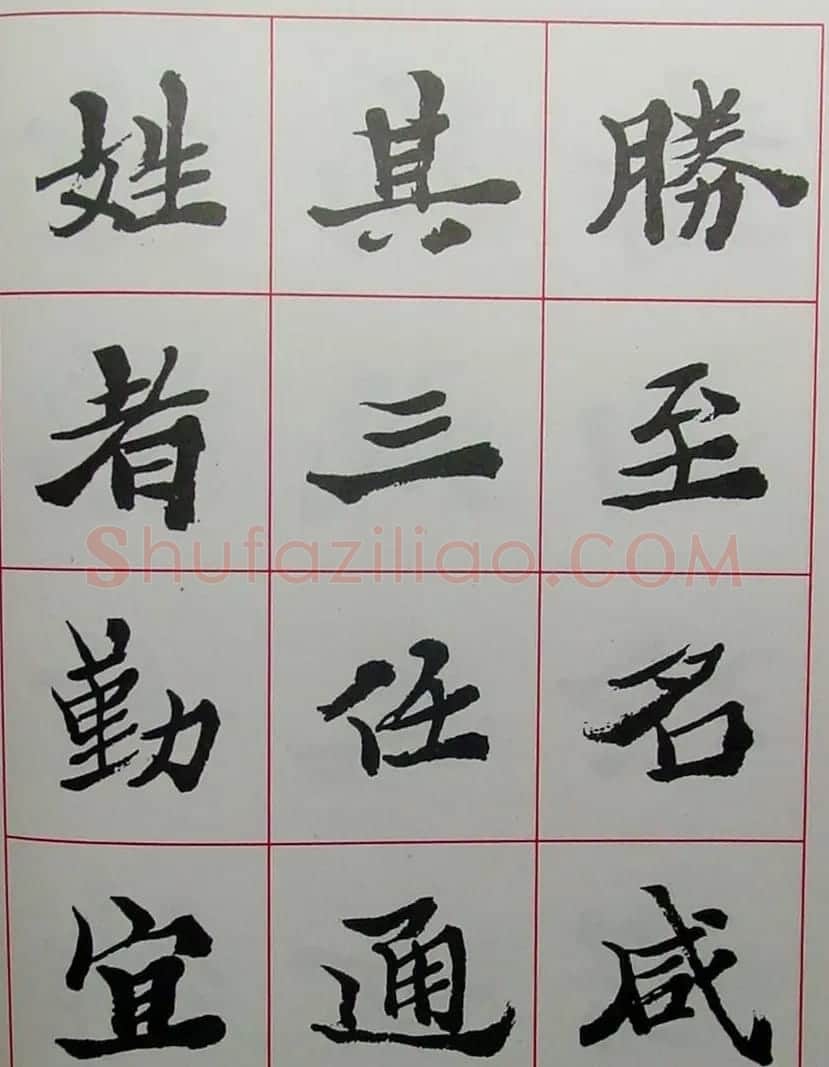 勝至名咸
其三任通
姓者勤宜
Shufaziliao.COM